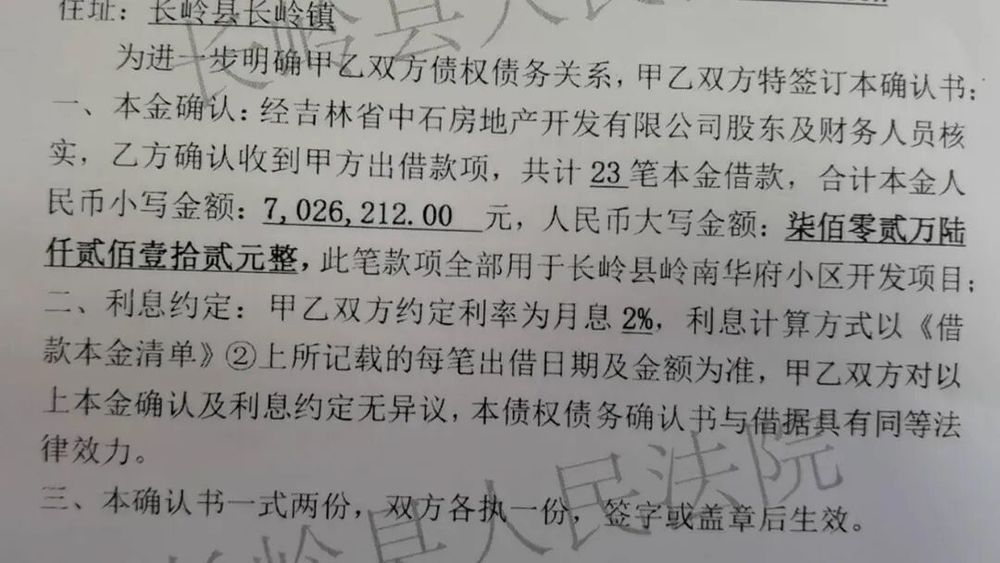 住址：长岭县长岭镇
为进一步明确甲乙双方债权债务关系，甲乙双方特签订本确认书：
一、本金确认：经吉林省中石房地产开发有限公司股东及财务人员核
实，乙方确认收到甲方出借款项，共计 23 笔本金借款，合计本金人
民币小写金额：7,026,212.00 元，人民币大写金额：柒佰零贰万陆
仟贰佰壹拾贰元整，此笔款项全部用于长岭县岭南华府小区开发项目；
二、利息约定：甲乙双方约定利率为月息 2%，利息计算方式以《借
款本金清单》②上所记载的每笔出借日期及金额为准，甲乙双方对以
上本金确认及利息约定无异议，本债权债务确认书与借据具有同等法
律效力。
三、本确认书一式两份，双方各执一份，签字或盖章后生效。
长岭县人民
长岭县人民法院